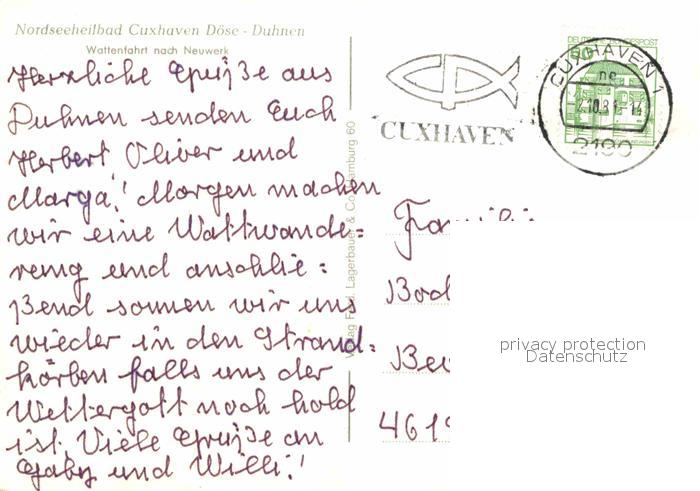 Nordseeheilbad Cuxhaven Döse - Duhnen
Wattenfahrt nach Neuwerk
Herzliche Grüße aus
Duhnen senden Euch
Herbert Oliver und
Marga! Morgen machen
wir eine Wattwande=
rung und anschlie=
ßend sonnen wir uns
wieder in den Strand=
körben falls uns der
Wettergott noch hold
ist. Viele Grüße an
Gaby und Willi!
Lagerbauer & Co
Hamburg 60
CUXHAVEN
DEUTSCHE BUNDESPOST
50
CUXHAVEN 1
2190
privacy protection
Datenschutz